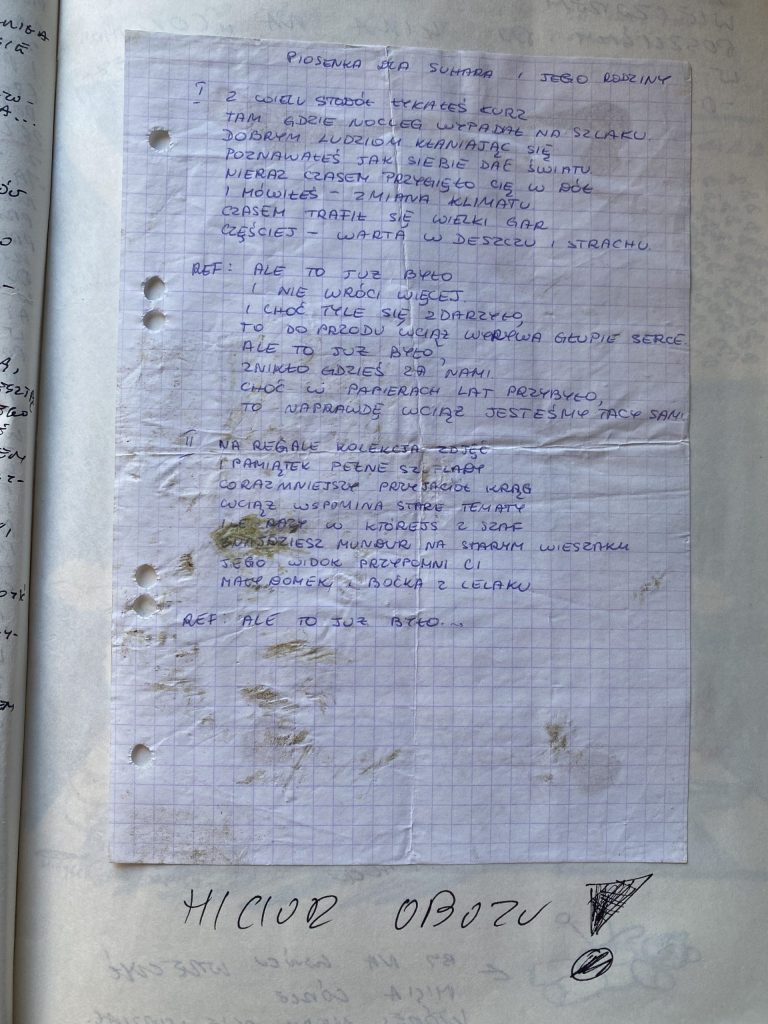 PIOSENKA DLA SUHARA I JEGO RODZINY
I Z WIELU STODÓŁ ŁYKAŁEŚ KURZ
TAM GDZIE NOCLEG WYPADAŁ NA SZLAKU.
DOBRYM LUDZIOM KŁANIAJĄC SIĘ
POZNAWAŁEŚ JAK SIEBIE DAĆ ŚWIATU.
NIERAZ CZASEM PRZYGIĘŁO CIĘ W DÓŁ
I MÓWIŁEŚ - ZMIANA KLIMATU.
CZASEM TRAFIŁ SIĘ WIELKI GAR
CZĘŚCIEJ - WARTA W DESZCZU I STRACHU.
REF: ALE TO JUŻ BYŁO
I NIE WRÓCI WIĘCEJ.
I CHOĆ TYLE SIĘ ZDARZYŁO,
TO DO PRZODU WCIĄŻ WYRYWA GŁUPIE SERCE.
ALE TO JUŻ BYŁO,
ZNIKŁO GDZIEŚ ZA NAMI.
CHOĆ W PAPIERACH LAT PRZYBYŁO,
TO NAPRAWDĘ WCIĄŻ JESTEŚMY TACY SAMI.
II NA REGALE KOLEKCJA ZDJĘĆ
I PAMIĄTEK PEŁNE SZUFLADY
CORAZ MNIEJSZY PRZYJACIÓŁ KRĄG
WCIĄŻ WSPOMINA STARE TEMATY
ILE RAZY W KTÓREJŚ Z SZAF
ZNAJDZIESZ MUNDUR NA STARYM WIESZAKU
JEGO WIDOK PRZYPOMNI CI
MAŁY DOMEK I BOĆKA Z LELAKU
REF: ALE TO JUŻ BYŁO...
HICIOR OBOZU !